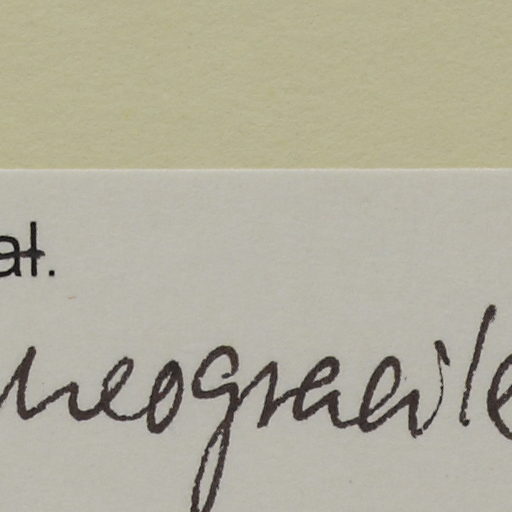 at.
neogracile